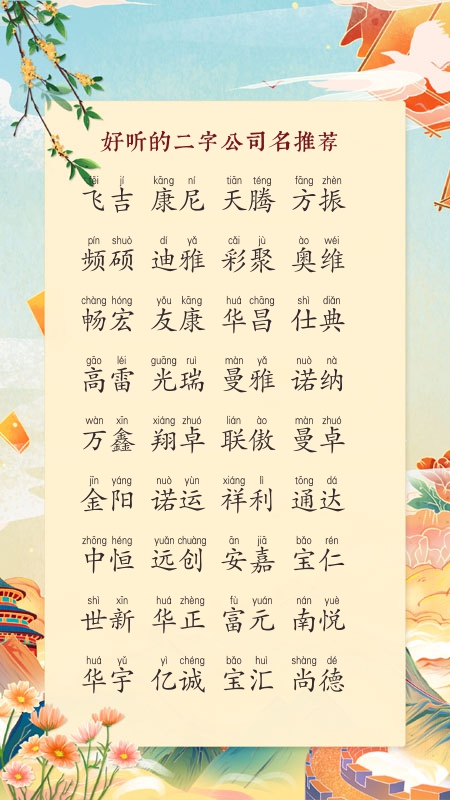 好听的二字公司名推荐
fēi jí kāng ní tiān téng fāng zhèn
飞吉 康尼 天腾 方振
pín shuò dí yǎ cǎi jù ào wéi
频硕 迪雅 彩聚 奥维
chàng hóng yǒu kāng huá chāng shì diǎn
畅宏 友康 华昌 仕典
gāo léi guāng ruì màn yǎ nuò nà
高雷 光瑞 曼雅 诺纳
wàn xīn xiáng zhuó lián ào màn zhuó
万鑫 翔卓 联傲 曼卓
jīn yáng nuò yùn xiáng lì tōng dá
金阳 诺运 祥利 通达
zhōng héng yuǎn chuàng ān jiā bǎo rén
中恒 远创 安嘉 宝仁
shì xīn huá zhèng fù yuán nán yuè
世新 华正 富元 南悦
huá yǔ yì chéng bǎo huì shàng dé
华宇 亿诚 宝汇 尚德